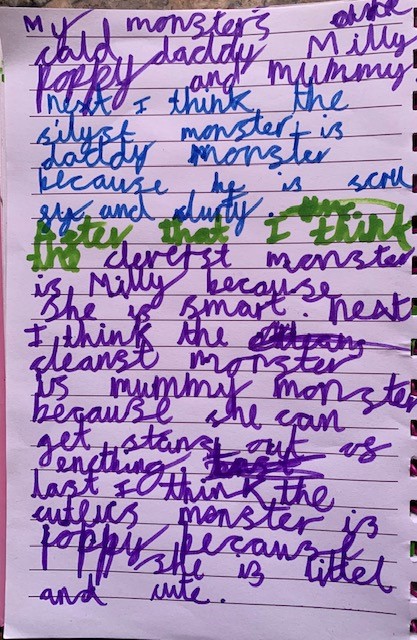 My monsters are
cald daddy Milly
Poppy and mummy
next I think the
silyst monster is
daddy monster
because he is scru
gy and durty.
After that I think
the cleverst monster
is Milly because
she is smart. next
I think the
cleanst monster
is mummy monster
because she can
get stans out of
enthing.
last I think the
cuteics monster is
Poppy because
she is littel
and cute.